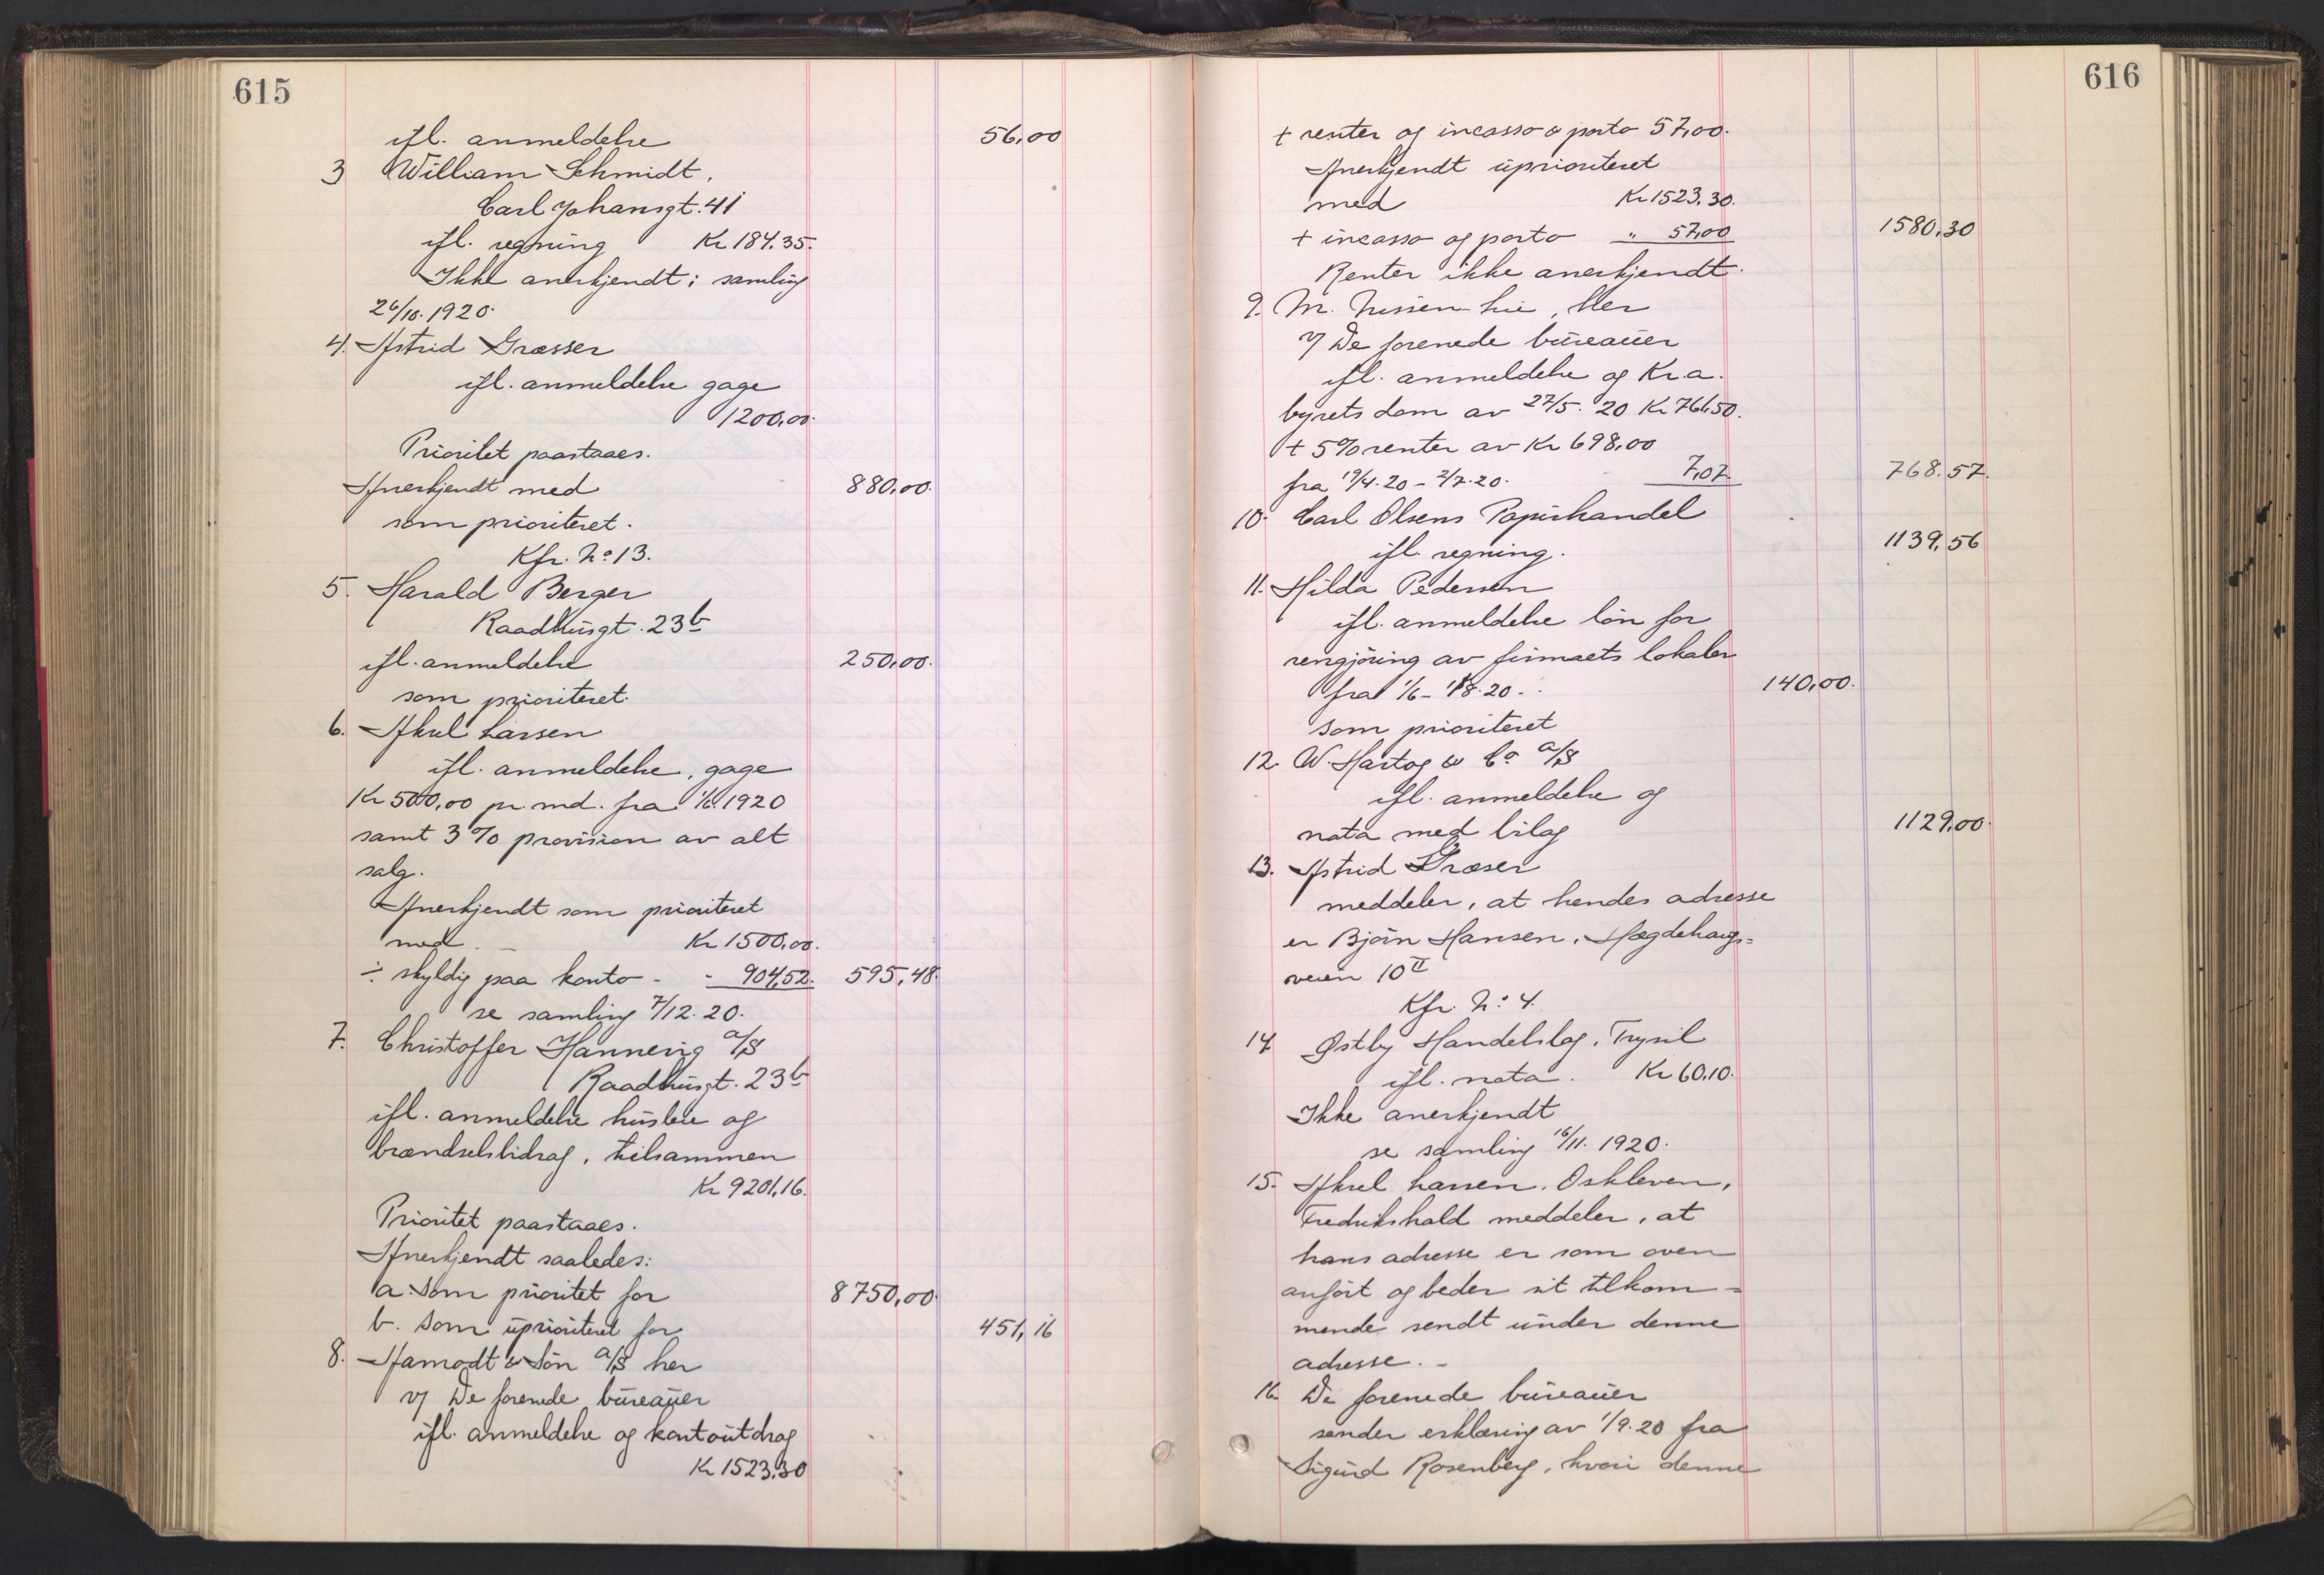 615
ifl. anmeldelse 56,00
3 William Schmidt,
Carl Johansgt. 41
ifl. regning Kr 184.35.
Ikke anerkjendt i samling
26/10. 1920.
4. Astrid Græsser
ifl. anmeldelse gage
1200,00.
Prioritet paastaaes.
Anerkjendt med 880,00.
som prioriteret.
Kfr. No 13.
5. Harald Berger
Raadhusgt. 23b
ifl. anmeldelse 250,00.
som prioriteret.
6. Aksel Larsen
ifl. anmeldelse, gage
Kr 500,00 pr. md. fra 1/6. 1920
samt 3% provision av alt
salg.
Anerkjendt som prioriteret
med. – Kr 1500,00.
÷ skyldig paa konto - - 904,52. 595,48.
se samling 7/12. 20.
7. Christoffer Hannevig a/S
Raadhusgt. 23b
ifl. anmeldelse husleie og
brændselsbidrag, tilsammen
Kr 9201,16.
Prioritet paastaaes.
Anerkjendt saaledes:
a. Som prioritet for 8750,00.
b. Som uprioriteret for 451,16
8. Aamodt & Søn a/S her
v/ De forenede bureauer
ifl. anmeldelse og kontoutdrag
Kr 1523.30
616
+ renter og incasso & porto 57,00.
Anerkjendt uprioriteret
med Kr 1523.30.
+ incasso og porto " 57,00 1580,30
Renter ikke anerkjendt.
9. M. Nissen-Lie, her
v/ De forenede bureauer
ifl. anmeldelse og Kr.a.
byrets dom av 27/5. 20 Kr 761,50.
+ 5% renter av Kr 698,00
fra 19/4. 20 - 2/7. 20. 7,07. 768.57.
10. Carl Olsens Papirhandel
ifl. regning. 1139,56
11. Hilda Pedersen
ifl. anmeldelse løn for
rengjøring av firmaets lokaler
fra 1/6 - 1/8. 20. 140,00.
som prioriteret
12. W. Hartog & Co a/S
ifl. anmeldelse og
nota med bilag 1129,00.
13. Astrid Græser
meddeler, at hendes adresse
er Bjørn Hansen, Hægdehaugs=
veien 10 II
Kfr. No: 4.
14 Østby Handelslag, Trysil
ifl. nota. Kr 60,10.
Ikke anerkjendt
se samling 16/11. 1920.
15. Aksel Larsen, Oskleven,
Fredrikshald meddeler, at
hans adresse er som oven
anført og beder sit tilkom=
mende sendt under denne
adresse. –
16. De forenede bureauer
sender erklæring av 1/9. 20 fra
Sigurd Rosenberg, hvori denne